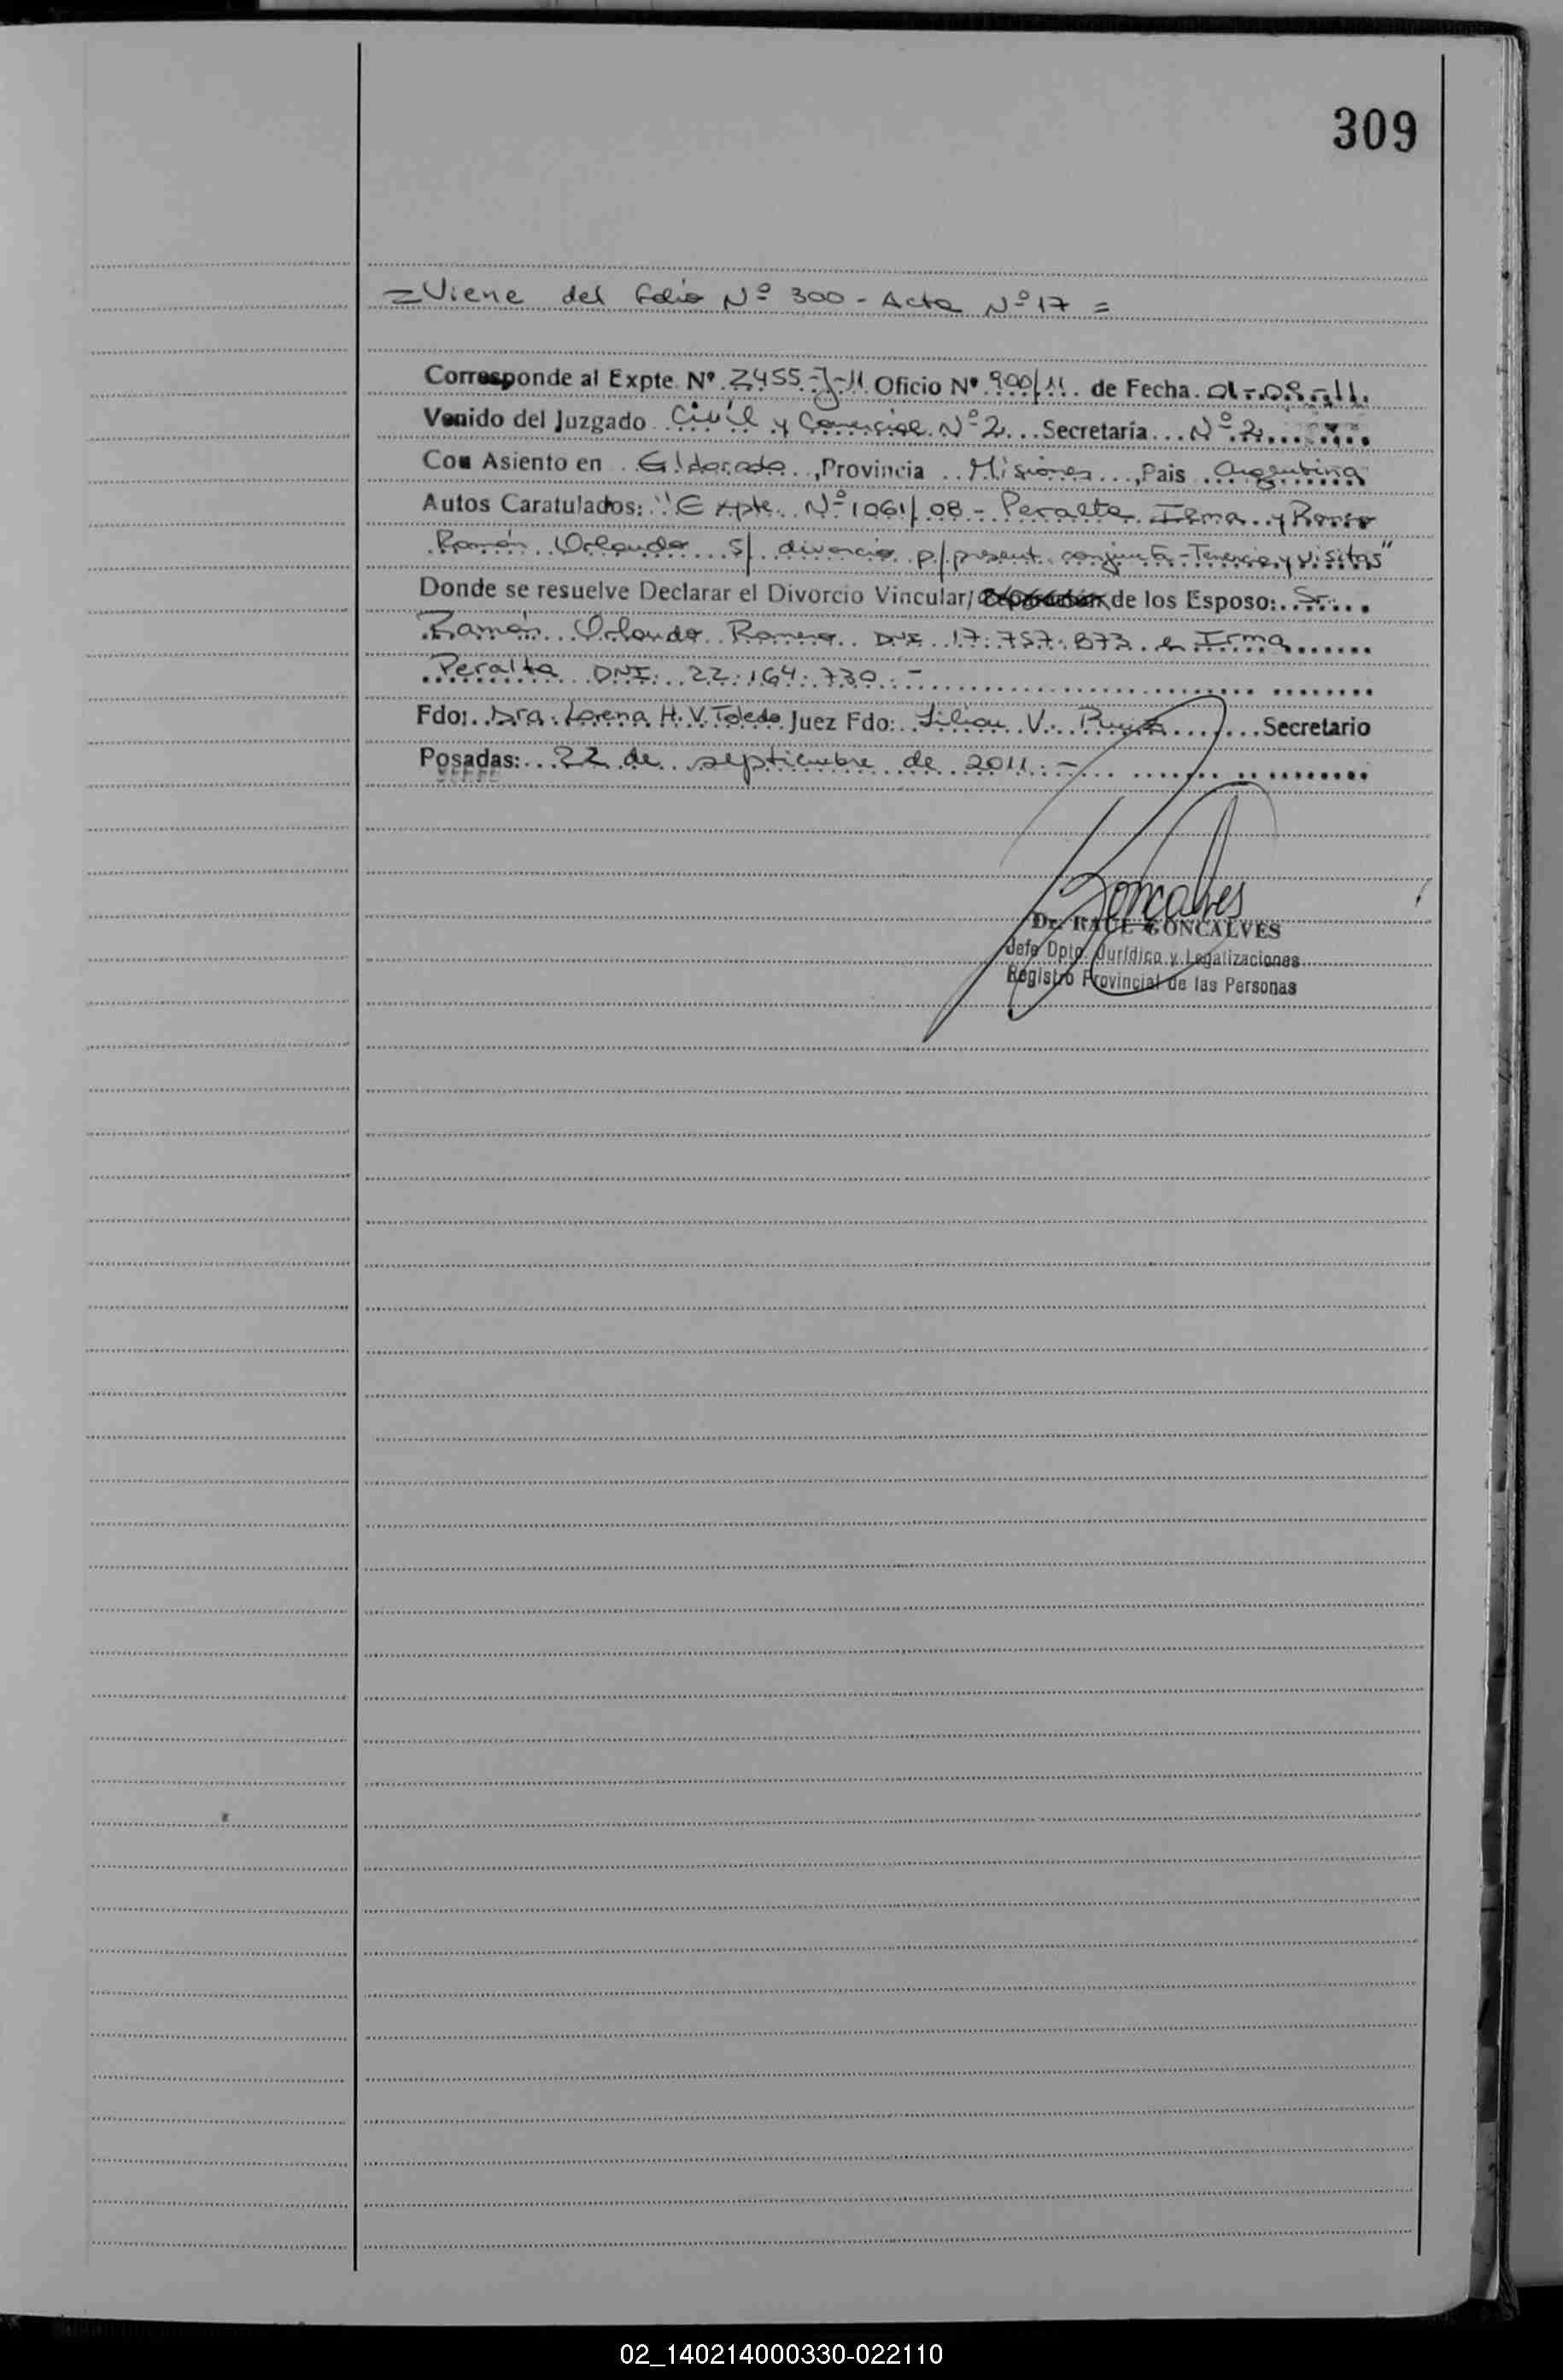 309
=Viene del folio Nº 300 - Acta Nº 17 =
Corresponde al Expte. Nº. 2455-J-11. Oficio Nº. 900/11. de Fecha. 01-.08.-.11.
Venido del Juzgado Civil y Comercial Nº 2... Secretaría... Nº 2....
Con Asiento en . Eldorado.., Provincia .. Misiones..., Pais Argentina
Autos Caratulados: "Expte. Nº 1061/08 - Peralta Irma y
Ramón Orlando s/ divorcio p/present. conjunta - Tenencia y visitas"
Donde se resuelve Declarar el Divorcio Vincular/ de los Esposo:. Sr....
Ramón Orlando Romero DNI 17.757.873 e Irma.......
Peralta DNI: 22.164.730.-
Fdo:. Dra. Lorena H. V. Toledo Juez Fdo: Lilian V. .......Secretario
Posadas:.. 22 de septiembre de 2011.-
Goncalves
Dr. RAUL GONCALVES
Jefe Dpto. Jurídico y Legalizaciones
Registro Provincial de las Personas
02_140214000330-022110